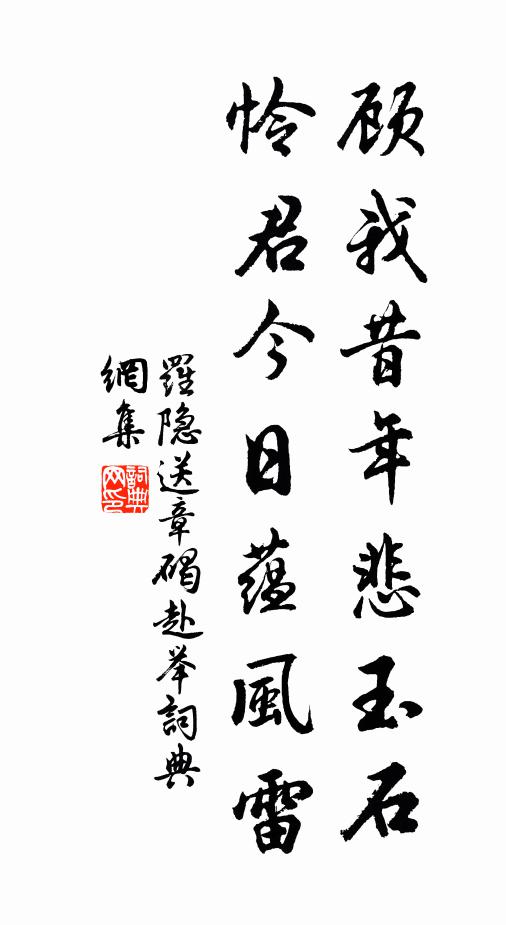 顾我昔年悲玉石
怜君今日蕴風雷
羅隐送章碣赴举詞典
網集
詞典
网印